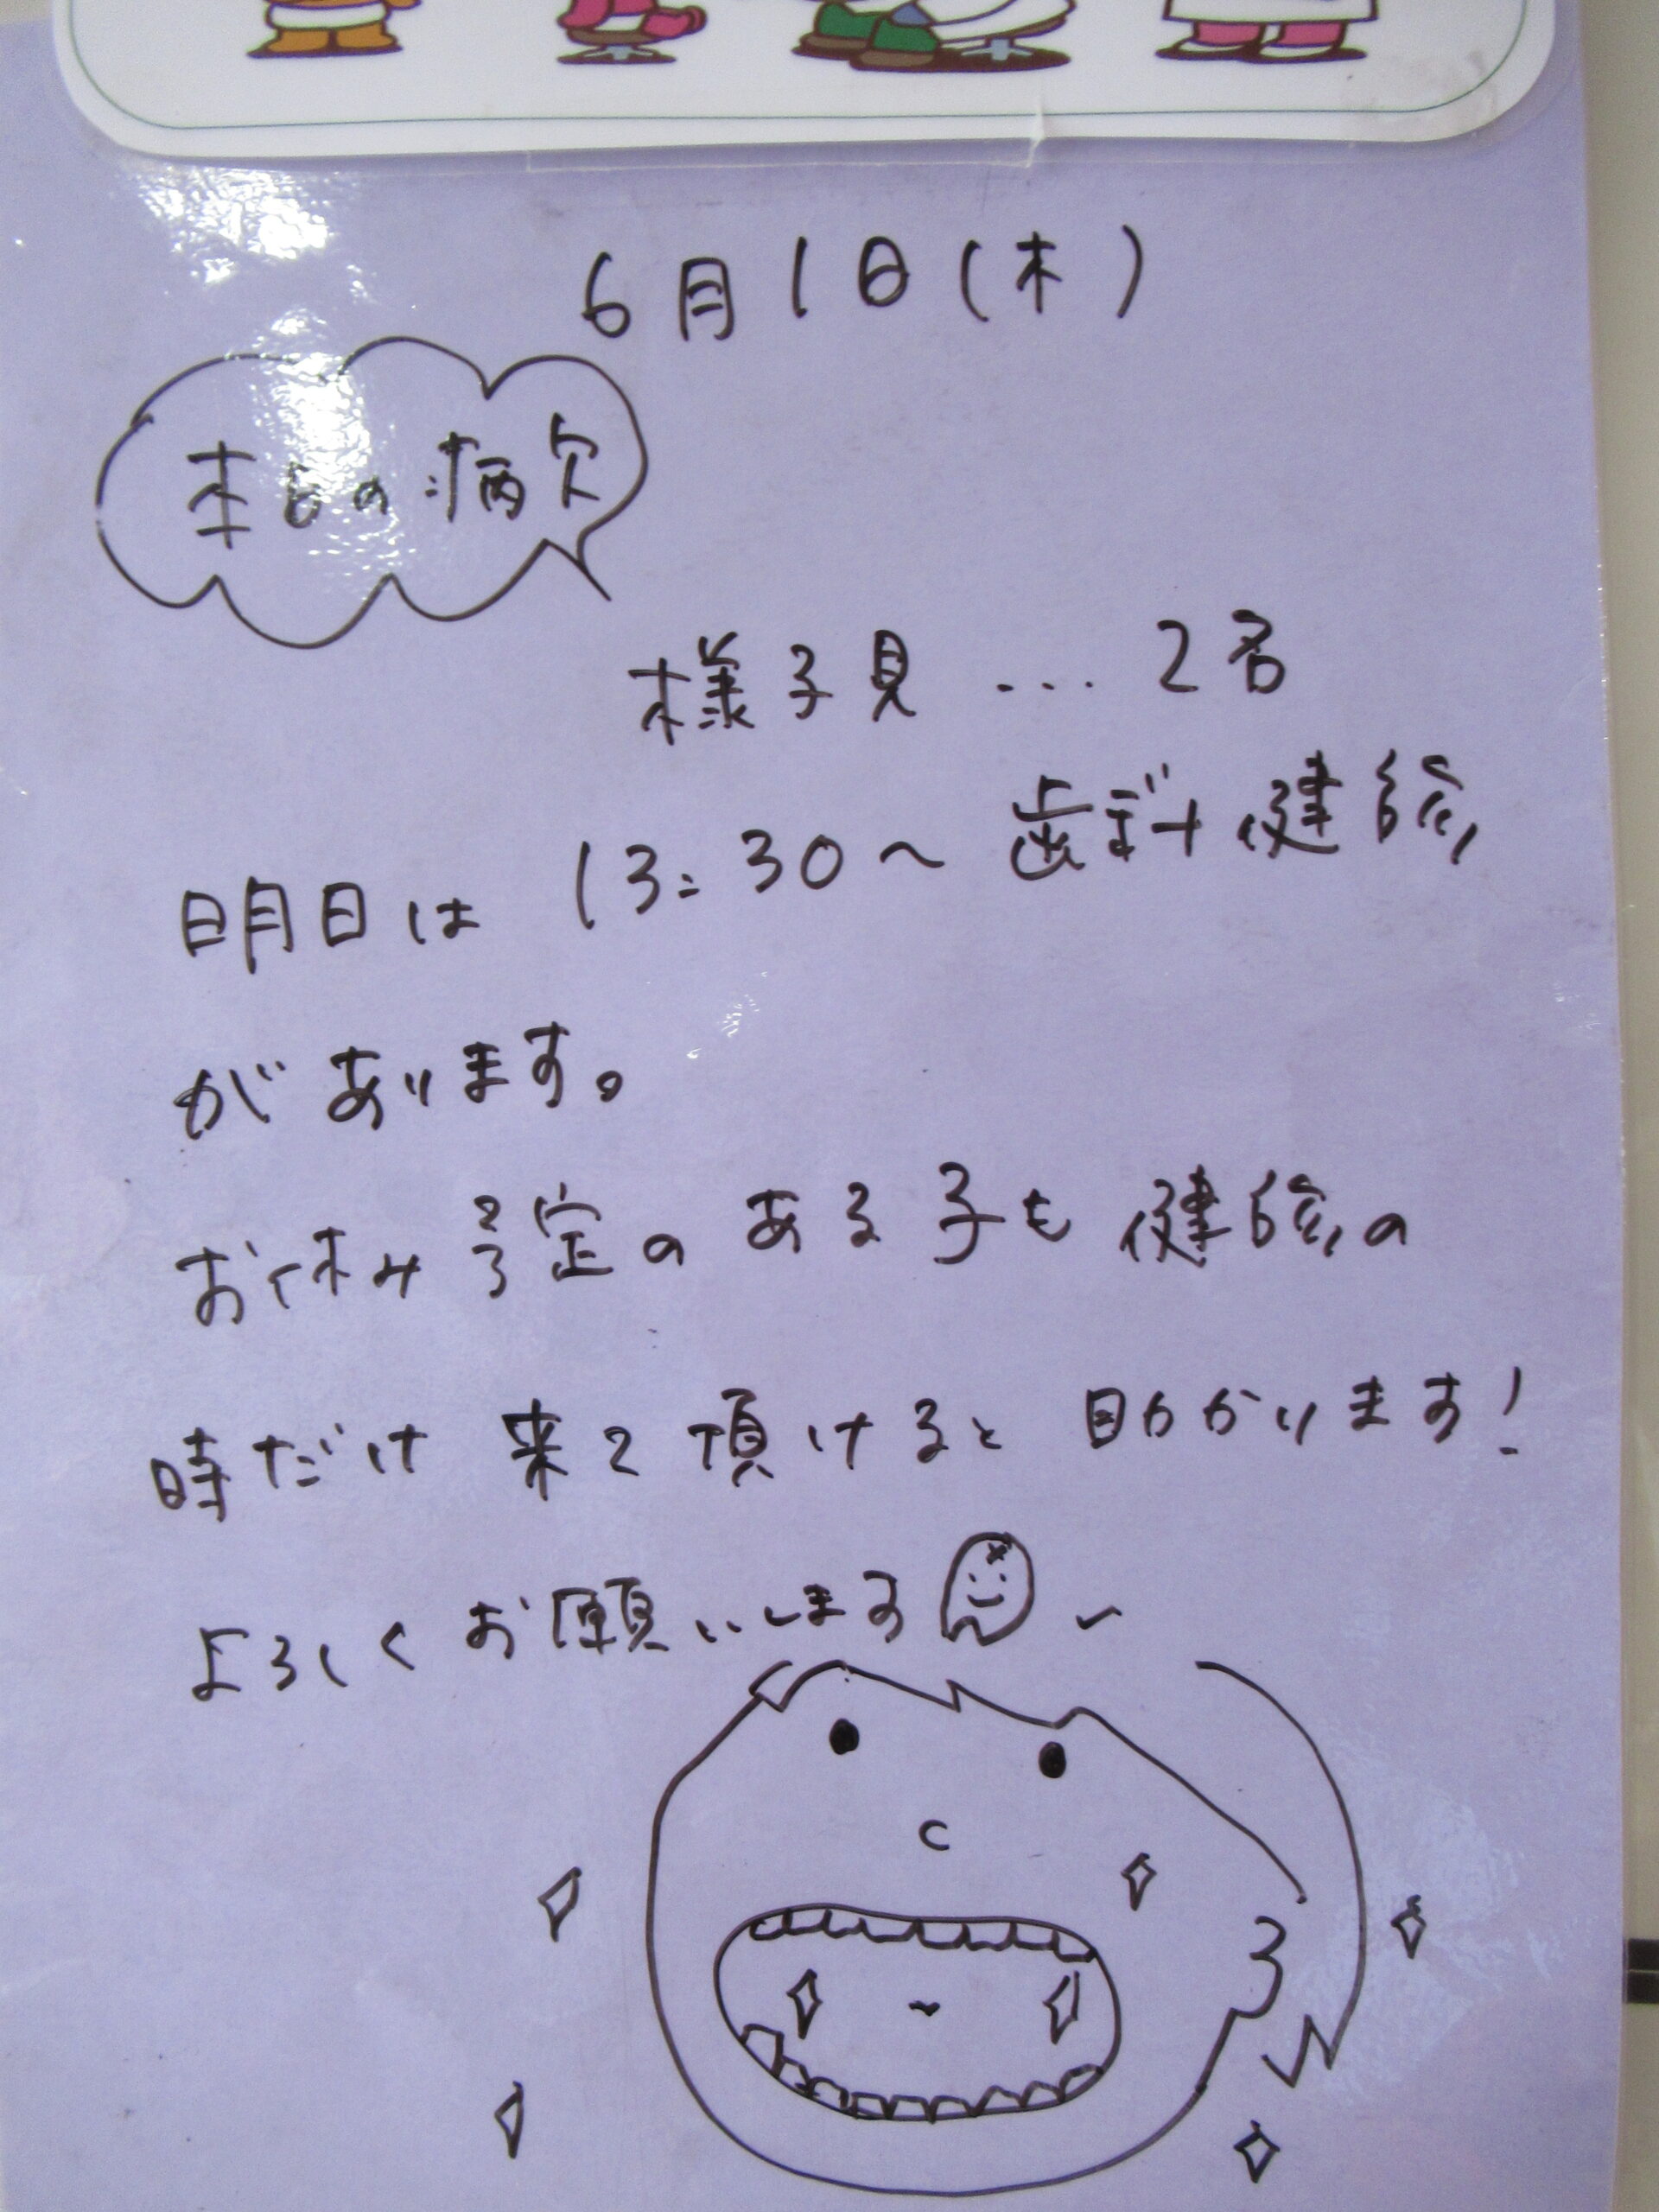 6月1日(木)
本日の病欠
様子見 … 2名
明日は 13:30~ 歯科健診
があります。
お休み予定のある子も健診の
時だけ来て頂けると助かります!
よろしくお願いします